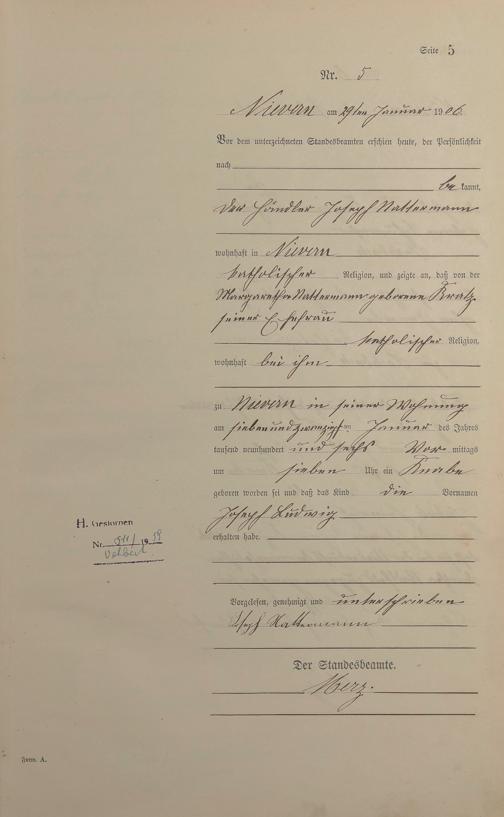 Seite 5
Nr. 5
Nievern am 29ten Januar 1906.
Vor dem unterzeichneten Standesbeamten erschien heute, der Persönlichkeit
nach
be kannt,
der Händler Joseph Nattermann
wohnhaft in Nievern
katholischer Religion, und zeigte an, daß von der
Margaretha Nattermann geborene Kratz
seiner Ehefrau
katholischer Religion,
wohnhaft bei ihm
zu Nievern in seiner Wohnung
am siebenundzwanzigsten Januar des Jahres
tausend neunhundert und sechs Vor mittags
um sieben Uhr ein Knabe
geboren worden sei und daß das Kind die Vornamen
Joseph Ludwig
erhalten habe.
H. Gestorben
Nr. 19
Velbert
Vorgelesen, genehmigt und unterschrieben
Joseph Nattermann
Der Standesbeamte.
Merz.
Form. A.